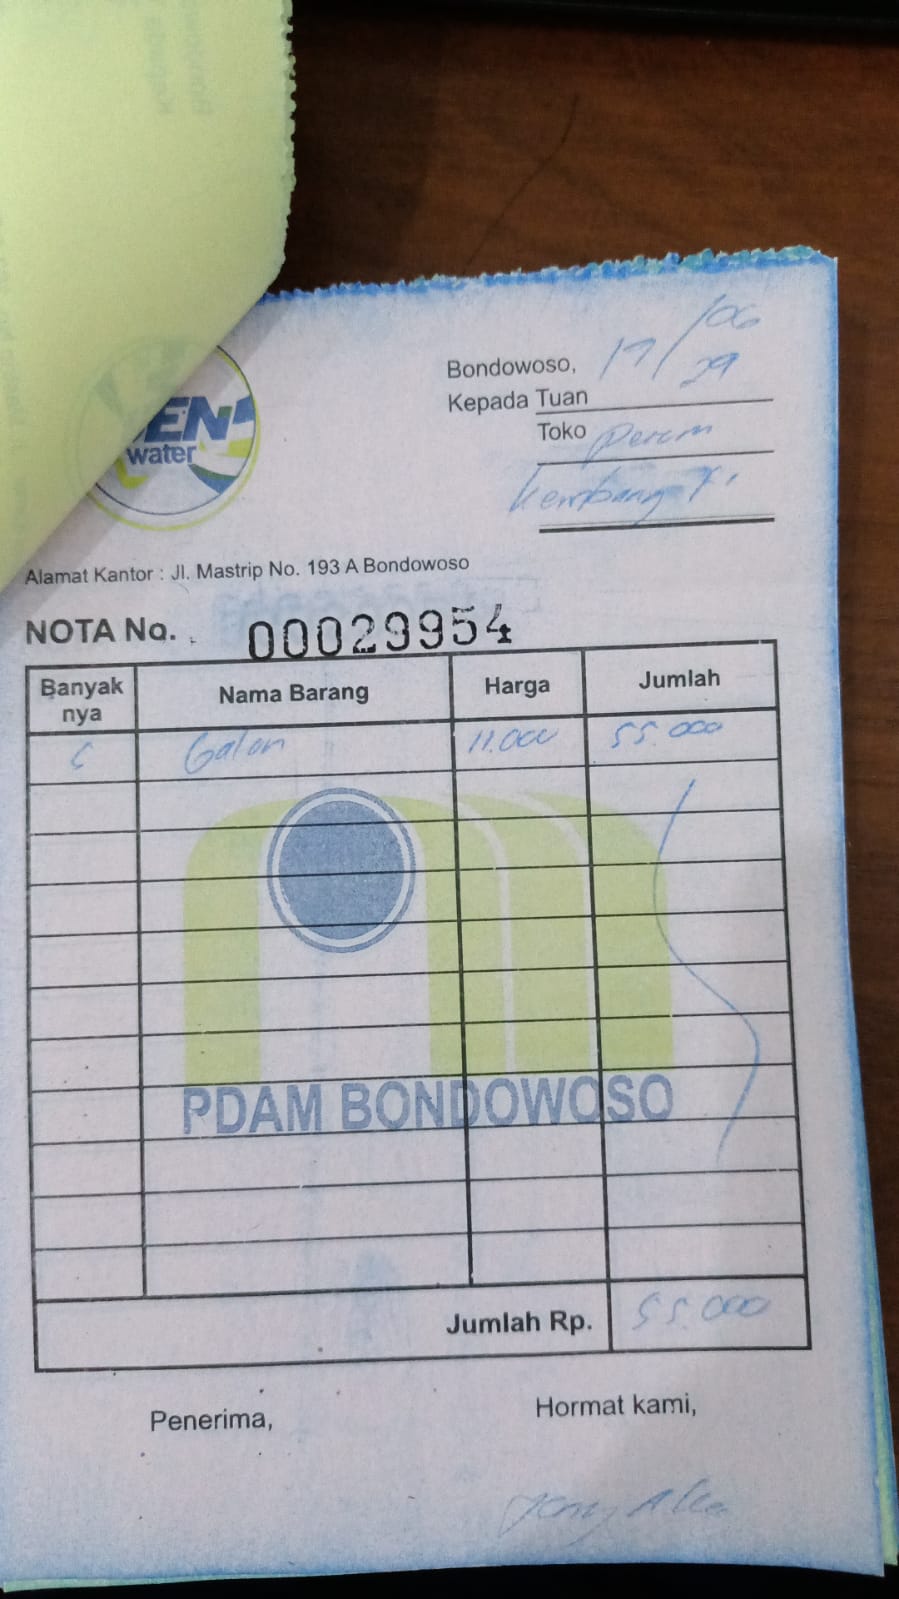 EN
water
Bondowoso, 17/06
29
Kepada Tuan
Toko Perum
Kembang
Alamat Kantor : Jl. Mastrip No. 193 A Bondowoso
NOTA No. 00029954
Banyak nya Nama Barang Harga Jumlah
5 Galon 11.000 55.000
PDAM BONDOWOSO
Jumlah Rp. 55.000
Penerima, Hormat kami,